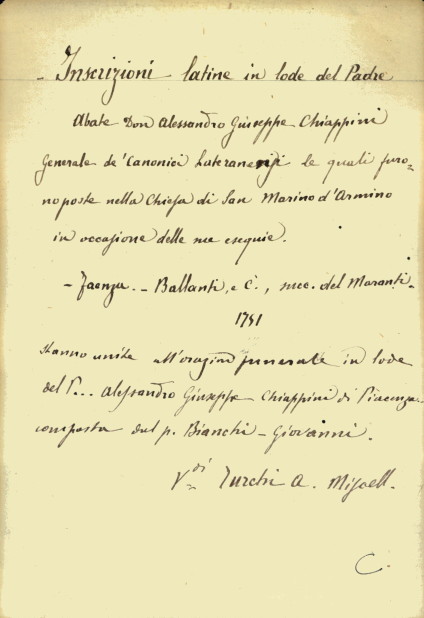 - Inscrizioni latine in lode del Padre
Abate Don Alessandro Giuseppe Chiappini
Generale de' Canonici Lateranensi le quali furo=
no poste nella Chiesa di San Marino d'Armino
in occasione delle sue esequie.
- Faenza. - Ballanti, e C., succ. del Maranti -
1751
Stanno unite all'orazion funerale in lode
del P... Alessandro Giuseppe Chiappini di Piacenza
composta dal p. Bianchi - Giovanni.
V. di Turchi A. Miscell.
C.